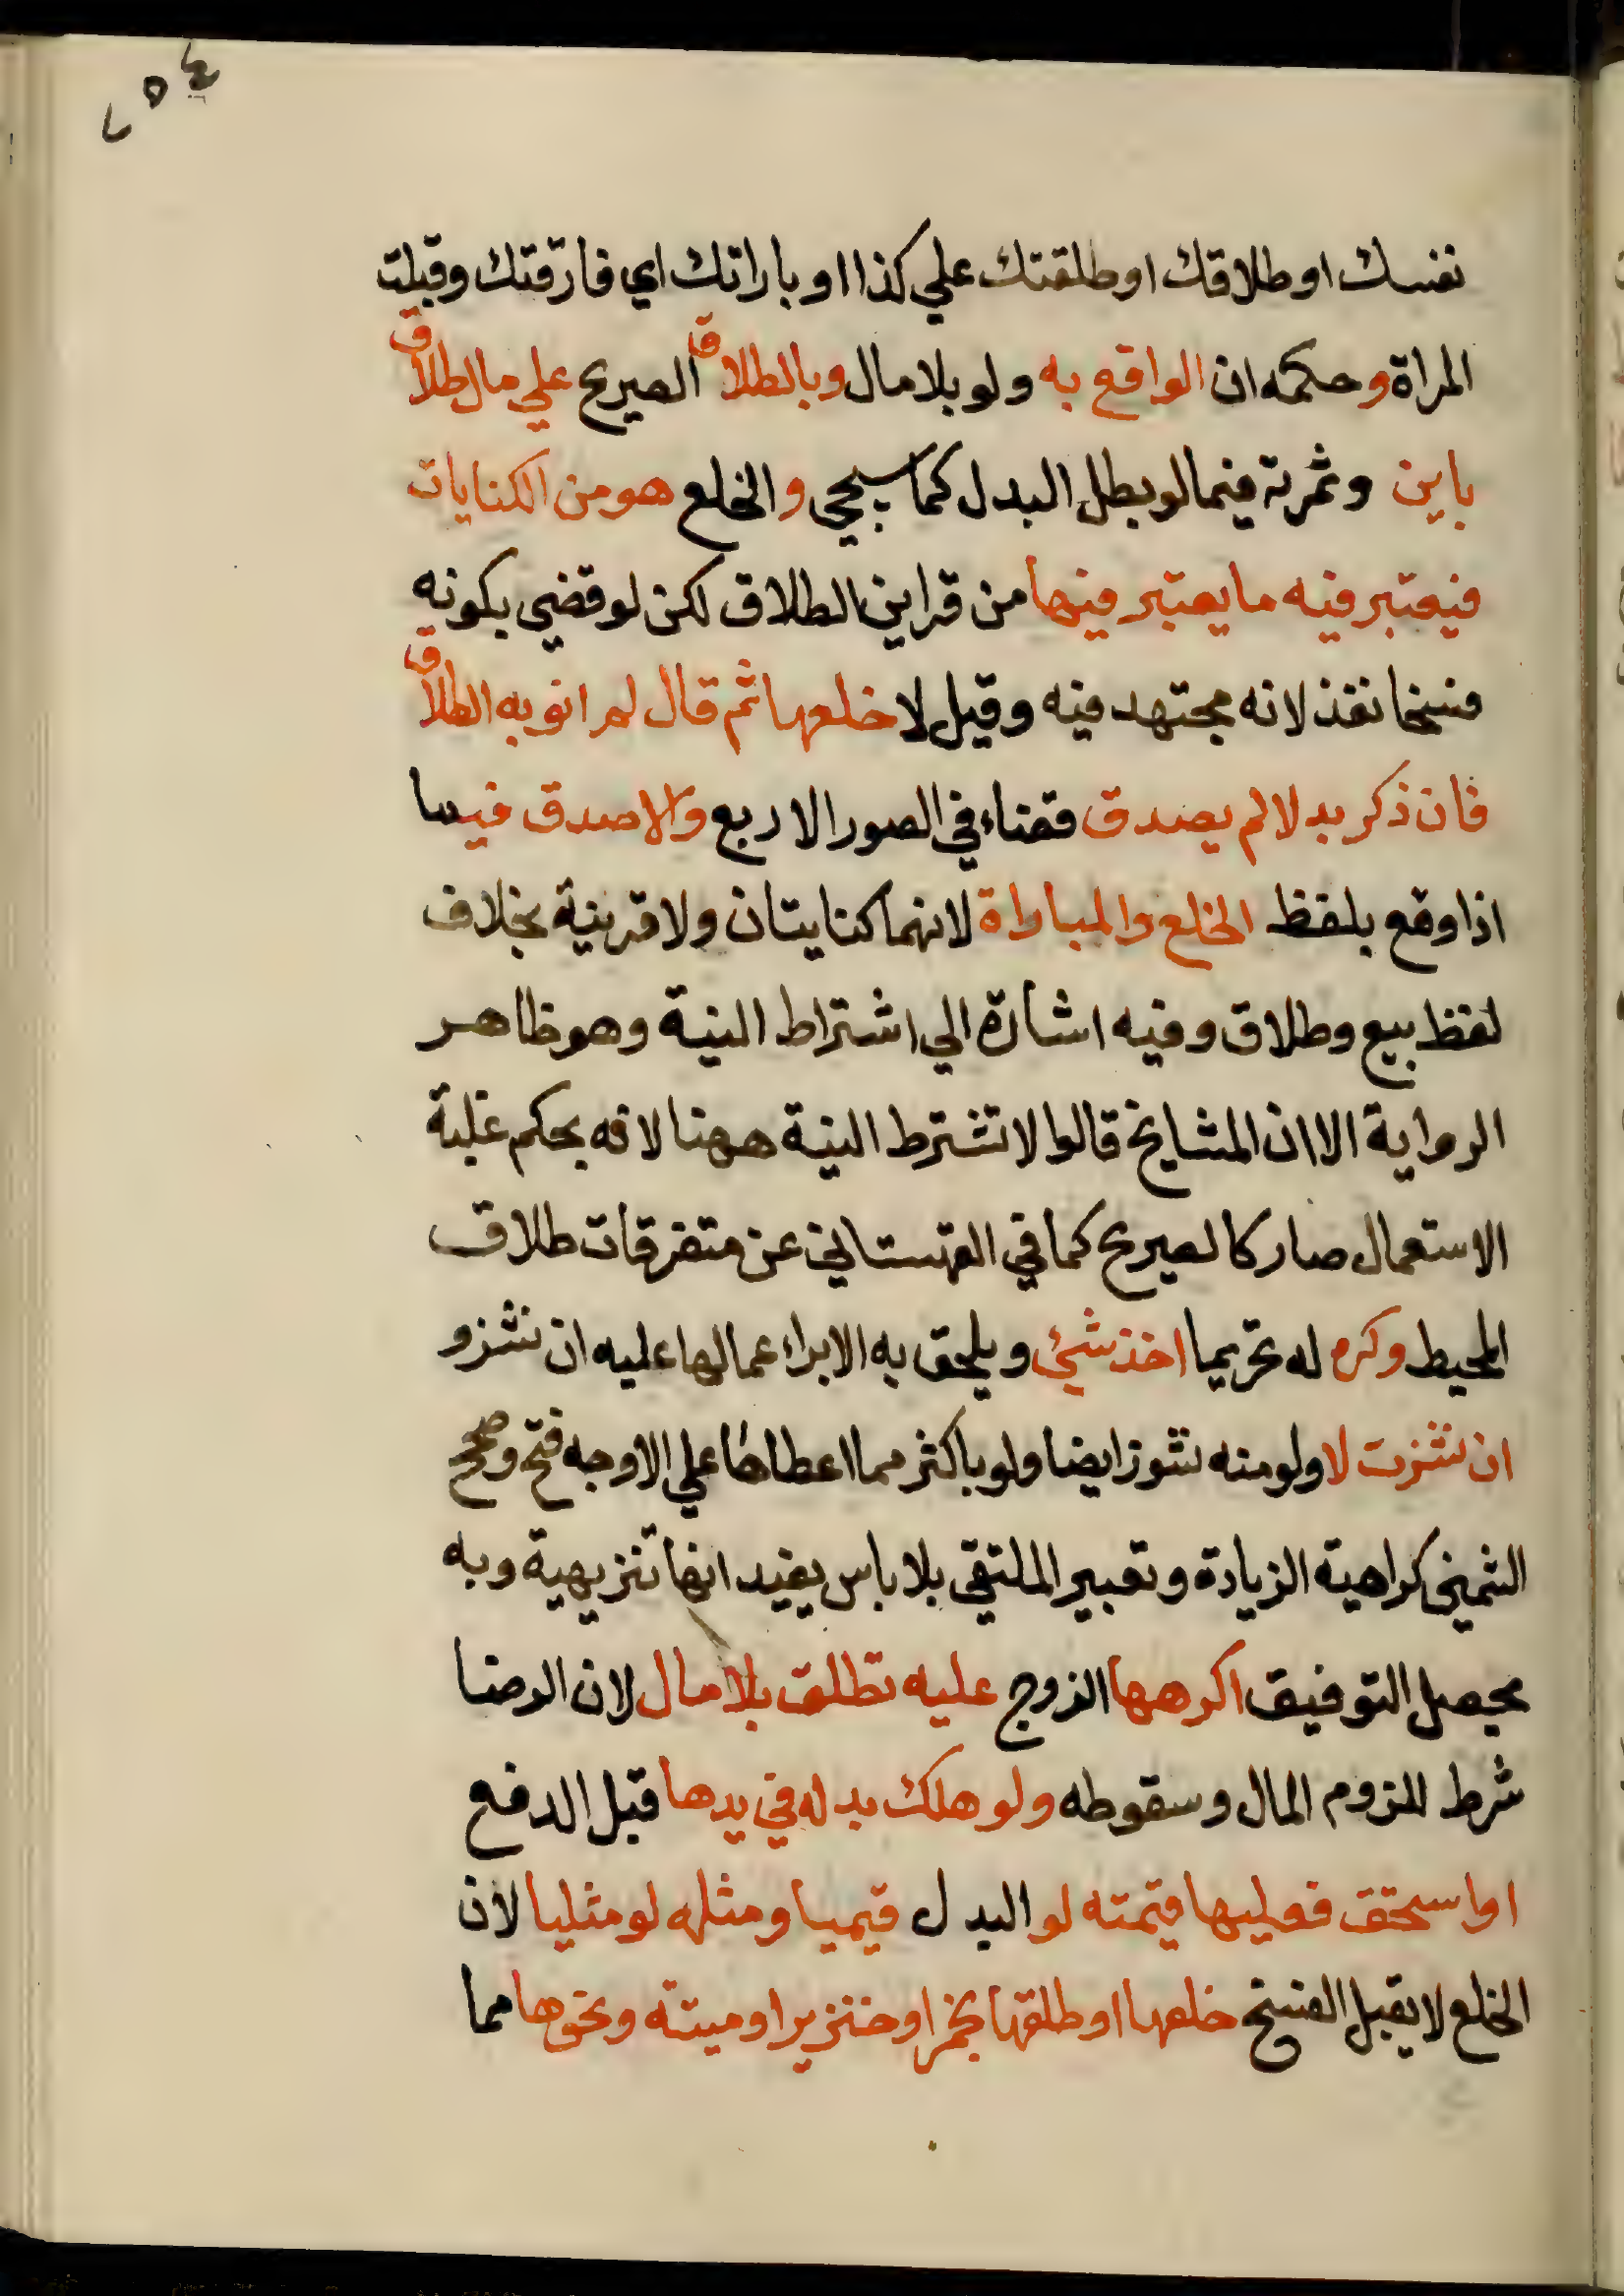 ٢٥٤
نفسك او طلاقك او طلقتك علي كذا او باراتك اي فارقتك وقبلت
المراة وحكمه ان الواقع به ولو بلا مال وبالطلاق الصريح علي مال طلاق
باين وثمرته فيما لو بطل البدل كما سيجي والخلع هو من الكنايات
فيعتبر فيه ما يعتبر فيها من قراين الطلاق لكن لو قضي بكونه
فسخا نفذ لانه مجتهد فيه وقيل لا خلعها ثم قال لم انو به الطلاق
فان ذكر بدلا لم يصدق قضاء في الصور الاربع والا صدق فيما
اذا وقع بلفظ الخلع والمباراة لانهما كنايتان ولا قرينة بخلاف
لفظ بيع وطلاق وفيه اشارة الي اشتراط النية وهو ظاهر
الرواية الا ان المشايخ قالوا لا تشترط النية ههنا لانه بحكم غلبة
الاستعمال صار كالصريح كما في القهستاني عن متفرقات طلاق
المحيط وكره له تحريما اخذ شئ ويلحق به الابراء عما لها عليه ان نشز و
ان نشزت لا ولو منه نشوز ايضا ولو باكثر مما اعطاها علي الاوجه فتح وصحح
الشمني كراهية الزيادة وتعبير الملتقي بلا باس يفيد انها تنزيهية وبه
يحصل التوفيق اكرهها الزوج عليه تطلق بلا مال لان الرضا
شرط للزوم المال وسقوطه ولو هلك بدله في يدها قبل الدفع
او استحق فعليها قيمته لو البدل قيميا ومثله لو مثليا لان
الخلع لا يقبل الفسخ خلعها او طلقها بخمر او خنزير او ميتة ونحوها مما